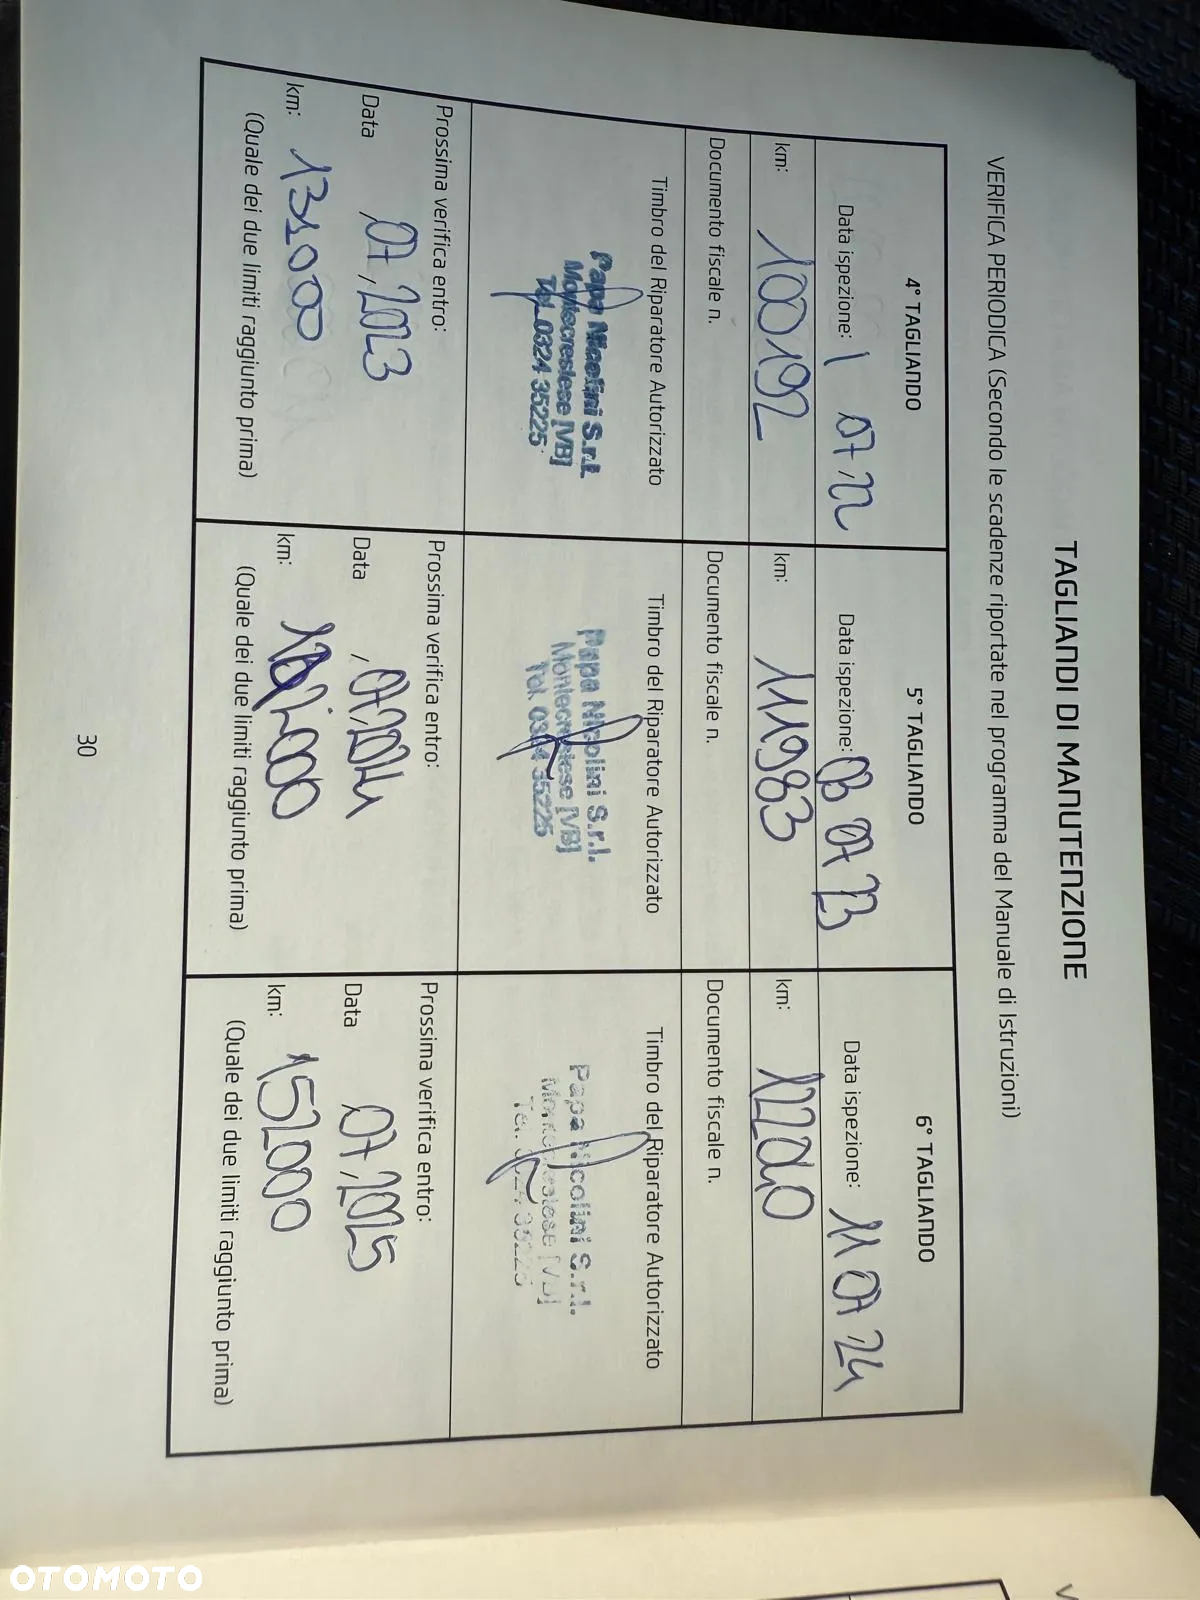 TAGLIANDI DI MANUTENZIONE
VERIFICA PERIODICA (Secondo le scadenze riportate nel programma del Manuale di Istruzioni)
4° TAGLIANDO
Data ispezione: 1 07 22
km: 100192
Documento fiscale n.
Timbro del Riparatore Autorizzato
Papa Nicolini S.r.l.
Montecrestese [VB]
Tel. 0324 35225
Prossima verifica entro:
Data 07,2023
km: 131000
(Quale dei due limiti raggiunto prima)
5° TAGLIANDO
Data ispezione: 03 07 23
km: 111983
Documento fiscale n.
Timbro del Riparatore Autorizzato
Papa Nicolini S.r.l.
Montecrestese [VB]
Tel. 0324 35225
Prossima verifica entro:
Data 07,2024
km:
(Quale dei due limiti raggiunto prima)
6° TAGLIANDO
Data ispezione: 11 07 24
km: 122040
Documento fiscale n.
Timbro del Riparatore Autorizzato
Papa Nicolini S.r.l.
Montecrestese [VB]
Tel. 0324 35225
Prossima verifica entro:
Data 07,2025
km: 152000
(Quale dei due limiti raggiunto prima)
30
OTOMOTO